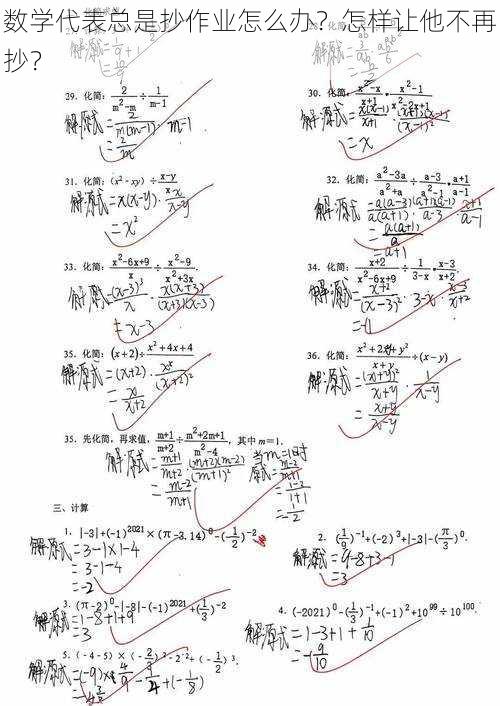 数学代表总是抄作业怎么办？怎样让他不再
抄？
29. 化简：2/(m²-m) ÷ 1/(m-1)
解:原式=2/(m(m-1)) · m-1
=2/m
30. 化简：(x²-x)/(x+1) · (x²-1)/(x²-2x+1)
=x
31. 化简：(x²-xy) ÷ (x-y)/x
解:原式=x(x-y)·x/(x-y)
=x²
32. 化简：(a²-3a)/(a²+a) ÷ (a-3)/(a²-1) · (a+1)/(a-1)
=a(a+1)/a
=a+1
33. 化简：(x²-6x+9)/x ÷ (x²-9)/(x²+3x).
=x-3
34. 化简：(x+2)/(x²-6x+9) ÷ 1/(3-x) · (x-3)/(x+2)
=-1
35. 化简：(x+2)÷(x²+4x+4)/x
=x/(x+2)
36. 化简：(x²+2xy+y²)/(x+y) ÷ (x-y)
解:原式=(x+y)²/(x+y) · 1/(x-y)
=(x+y)/(x-y)
35. 先化简，再求值，(m+1)/(m+2) ÷ (m²+2m+1)/(m²-4)，其中 m=1.
解:原式=(m+1)/(m+2) · (m+2)(m-2)/(m+1)²
=(m-2)/(m+1)
当m=1时
原式=(m-2)/(m+1)
=(1-2)/(1+1)
=-1/2
三、计算
1. |-3|+(-1)²⁰²¹×(π-3.14)⁰-(1/2)⁻²
解:原式=3-1×1-4
=3-1-4
=-2
2. (1/9)⁻¹+(-2)³+|-3|-(π/3)⁰.
解:原式=9-8+3-1
=3
3. (π-2)⁰-|-8|-(-1)²⁰²¹+(1/3)⁻²
解:原式=1-8+1+9
=3
4. (-2021)⁰-(1/3)⁻¹+(-1)²+10⁹⁹÷10¹⁰⁰.
解:原式=1-3+1+1/10
=-9/10
5. (-4-5)×(-2/3)²-2⁻²+(-1/2)³.
解:原式=(-9)×4/9-1/4+(-1/8)